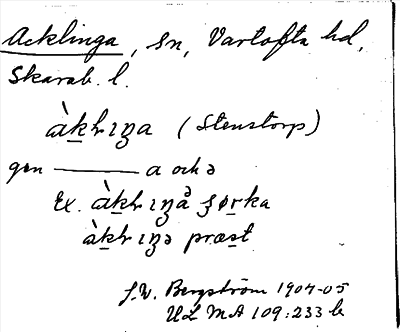 Acklinga, sn, Vartofta hd,
Skarab. l.
àk̲lɩŋa (Stenstorp)
gen ——— a och ə
Ex. àk̲lɩŋə̊ ʂør̲ka
àk̲lɩŋə præs̲t
J. W. Bergström 1904-05
ULMA 109:233 b